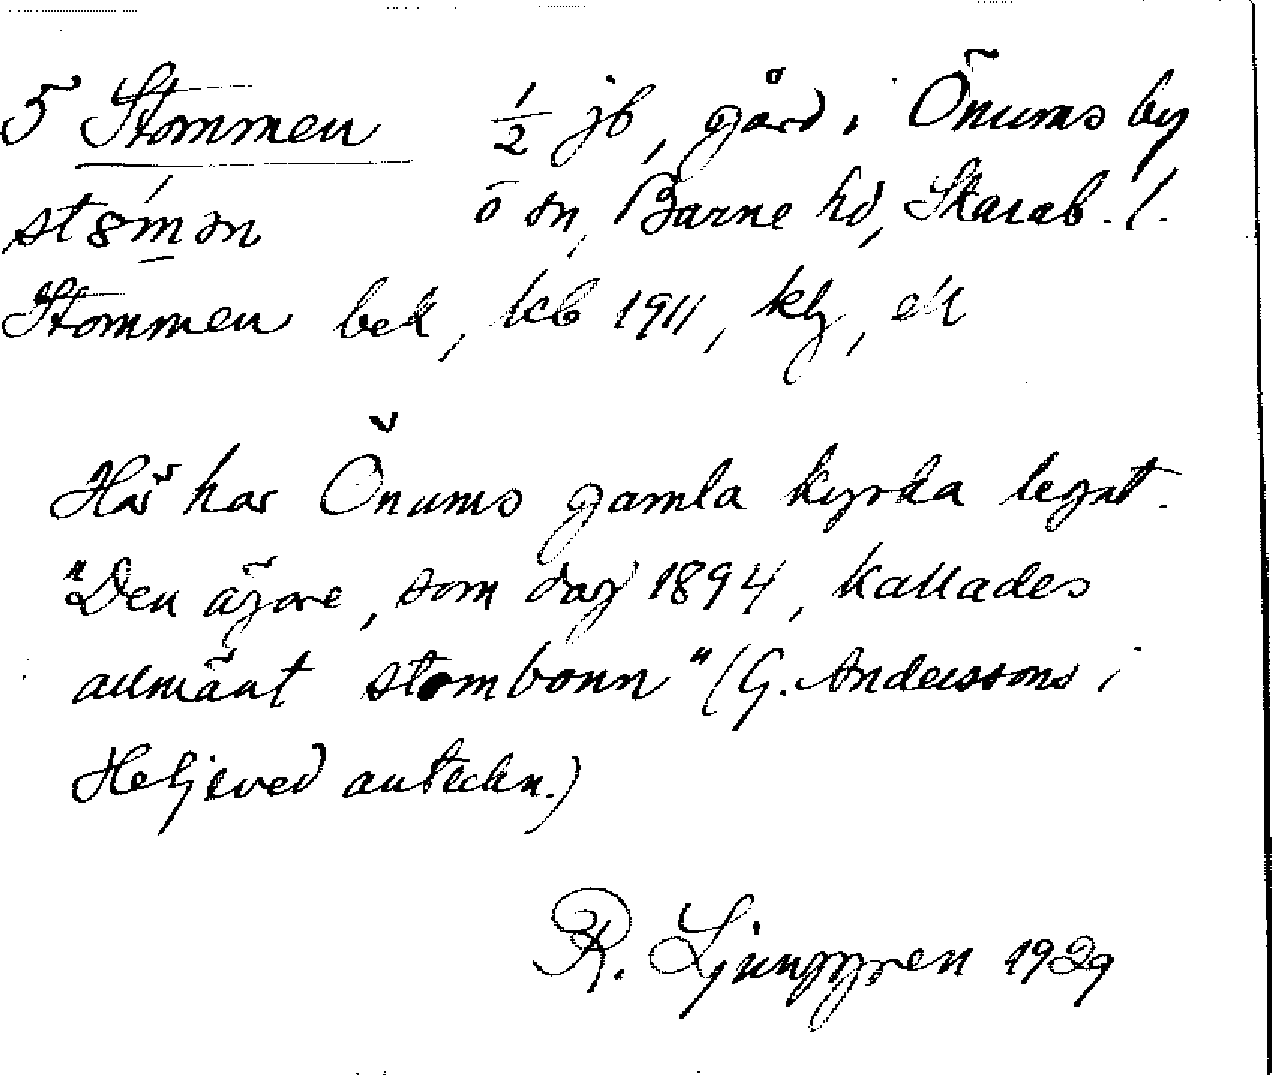 5 Stommen ½ jb, gård i Önums by
stɵ́m̲ɷn ö sn, Barne hd, Skarab. l.
Stommen bek, kcb 1911, kbg, ek
Här har Önums gamla kyrka legat.
"Den ägare, som dog 1894, kallades
allmänt stombonn" (G. Anderssons i
Heljeved anteckn.)
R. Ljunggren 1929